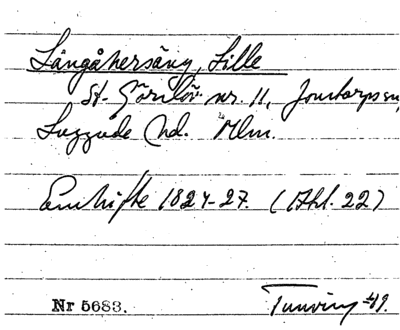 Långåkersäng, Lille
St. Görslöv nr. 11, Jonstorps sn,
Luggude hd. Mlm.
Enskifte 1824-27. (Akt. 22)
Nr 5683. Tunving -49.